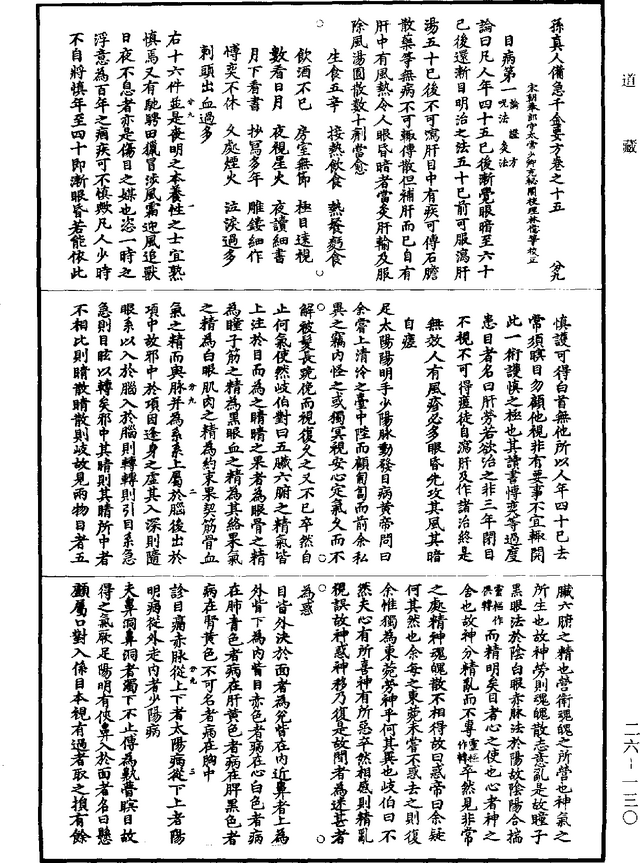 道藏
孫真人備急千金要方卷之十五 分九
宋朝奉郎守太常少卿充秘閣校理林億等校正
目病第一 論 證 方 咒法 灸法
論曰凡人年四十五已後漸覺眼暗至六十
已後還漸目明治之法五十已前可服瀉肝
湯五十已後不可瀉肝目中有疾可傅石膽
散藥等無病不可輒傅散但補肝而已自有
肝中有風熱令人眼昏暗者當灸肝輸及服
除風湯圓散數十劑當愈
生食五辛 接熱飲食 熱餐麪食
飲酒不已 房室無節 極目遠視
數看日月 夜視星火 夜讀細書
月下看書 抄寫多年 雕鏤細作
博奕不休 久處煙火 泣淚過多
刺頭出血過多
右十六件並是喪明之本養性之士宜熟
慎焉又有馳騁田獵冒涉風霜迎風追獸
日夜不息者亦是傷目之媒也恣一時之
浮意為百年之痼疾可不慎歟凡人少時
不自將慎年至四十即漸眼昏若能依此
慎護可得白首無他所以人年四十已去
常須瞑目勿顧他視非有要事不宜輒開
此一術護慎之極也其讀書博奕等過度
患目者名曰肝勞若欲治之非三年閉目
不視不可得瘥徒自瀉肝及作諸治終是
無效人有風疹必多眼昏先攻其風其暗
自瘥
足太陽陽明手少陽脉動發目病黃帝問曰
余嘗上清泠之臺中陛而顧匍匐而前余私
異之竊內怪之或獨冥視安心定氣久而不
解被髮長跪俛而視復久之又不已卒然自
止何氣使然岐伯對曰五臟六腑之精氣皆
上注於目而為之睛睛之果者為眼骨之精
為瞳子筋之精為黑眼血之精為其絡果氣
之精為白眼肌肉之精為約束果契筋骨血
氣之精而與脉并為系系上屬於腦後出於
項中故邪中於項因逢身之虛其入深則隨
眼系以入於腦入於腦則轉轉則引目系急
急則目眩以轉矣邪中其睛則其睛所中者
不相比則睛散睛散則岐故見兩物目者五
臟六腑之精也營衛魂魄之所營也神氣之
所生也故神勞則魂魄散志意亂是故瞳子
黑眼法於陰白眼赤脉法於陽故陰陽合揣
靈樞作俱轉 而精明矣目者心之使也心者神之
舍也故神分精亂而不專靈樞作轉卒然見非常
之處精神魂魄散不相得故曰惑帝曰余疑
何其然也余每之東菀未嘗不惑去之則復
余惟獨為東菀勞神乎何其異也岐伯曰不
然夫心有所喜神有所惡卒然相感則精亂
視誤故神惑神移乃復是故間者為迷甚者
為惑
目眥外決於面者為兊眥在內近鼻者上為
外眥下為內眥目赤色者病在心白色者病
在肺青色者病在肝黃色者病在脾黑色者
病在腎黃色不可名者病在胸中
診目痛赤脉從上下者太陽病從下上者陽
明病從外走內者少陽病
夫鼻洞鼻洞者濁下不止傳為鼽瞢瞑目故
得之氣厥足陽明有俠鼻入於面者名曰懸
顱屬口對入係目本視有過者取之損有餘
二六－一三〇